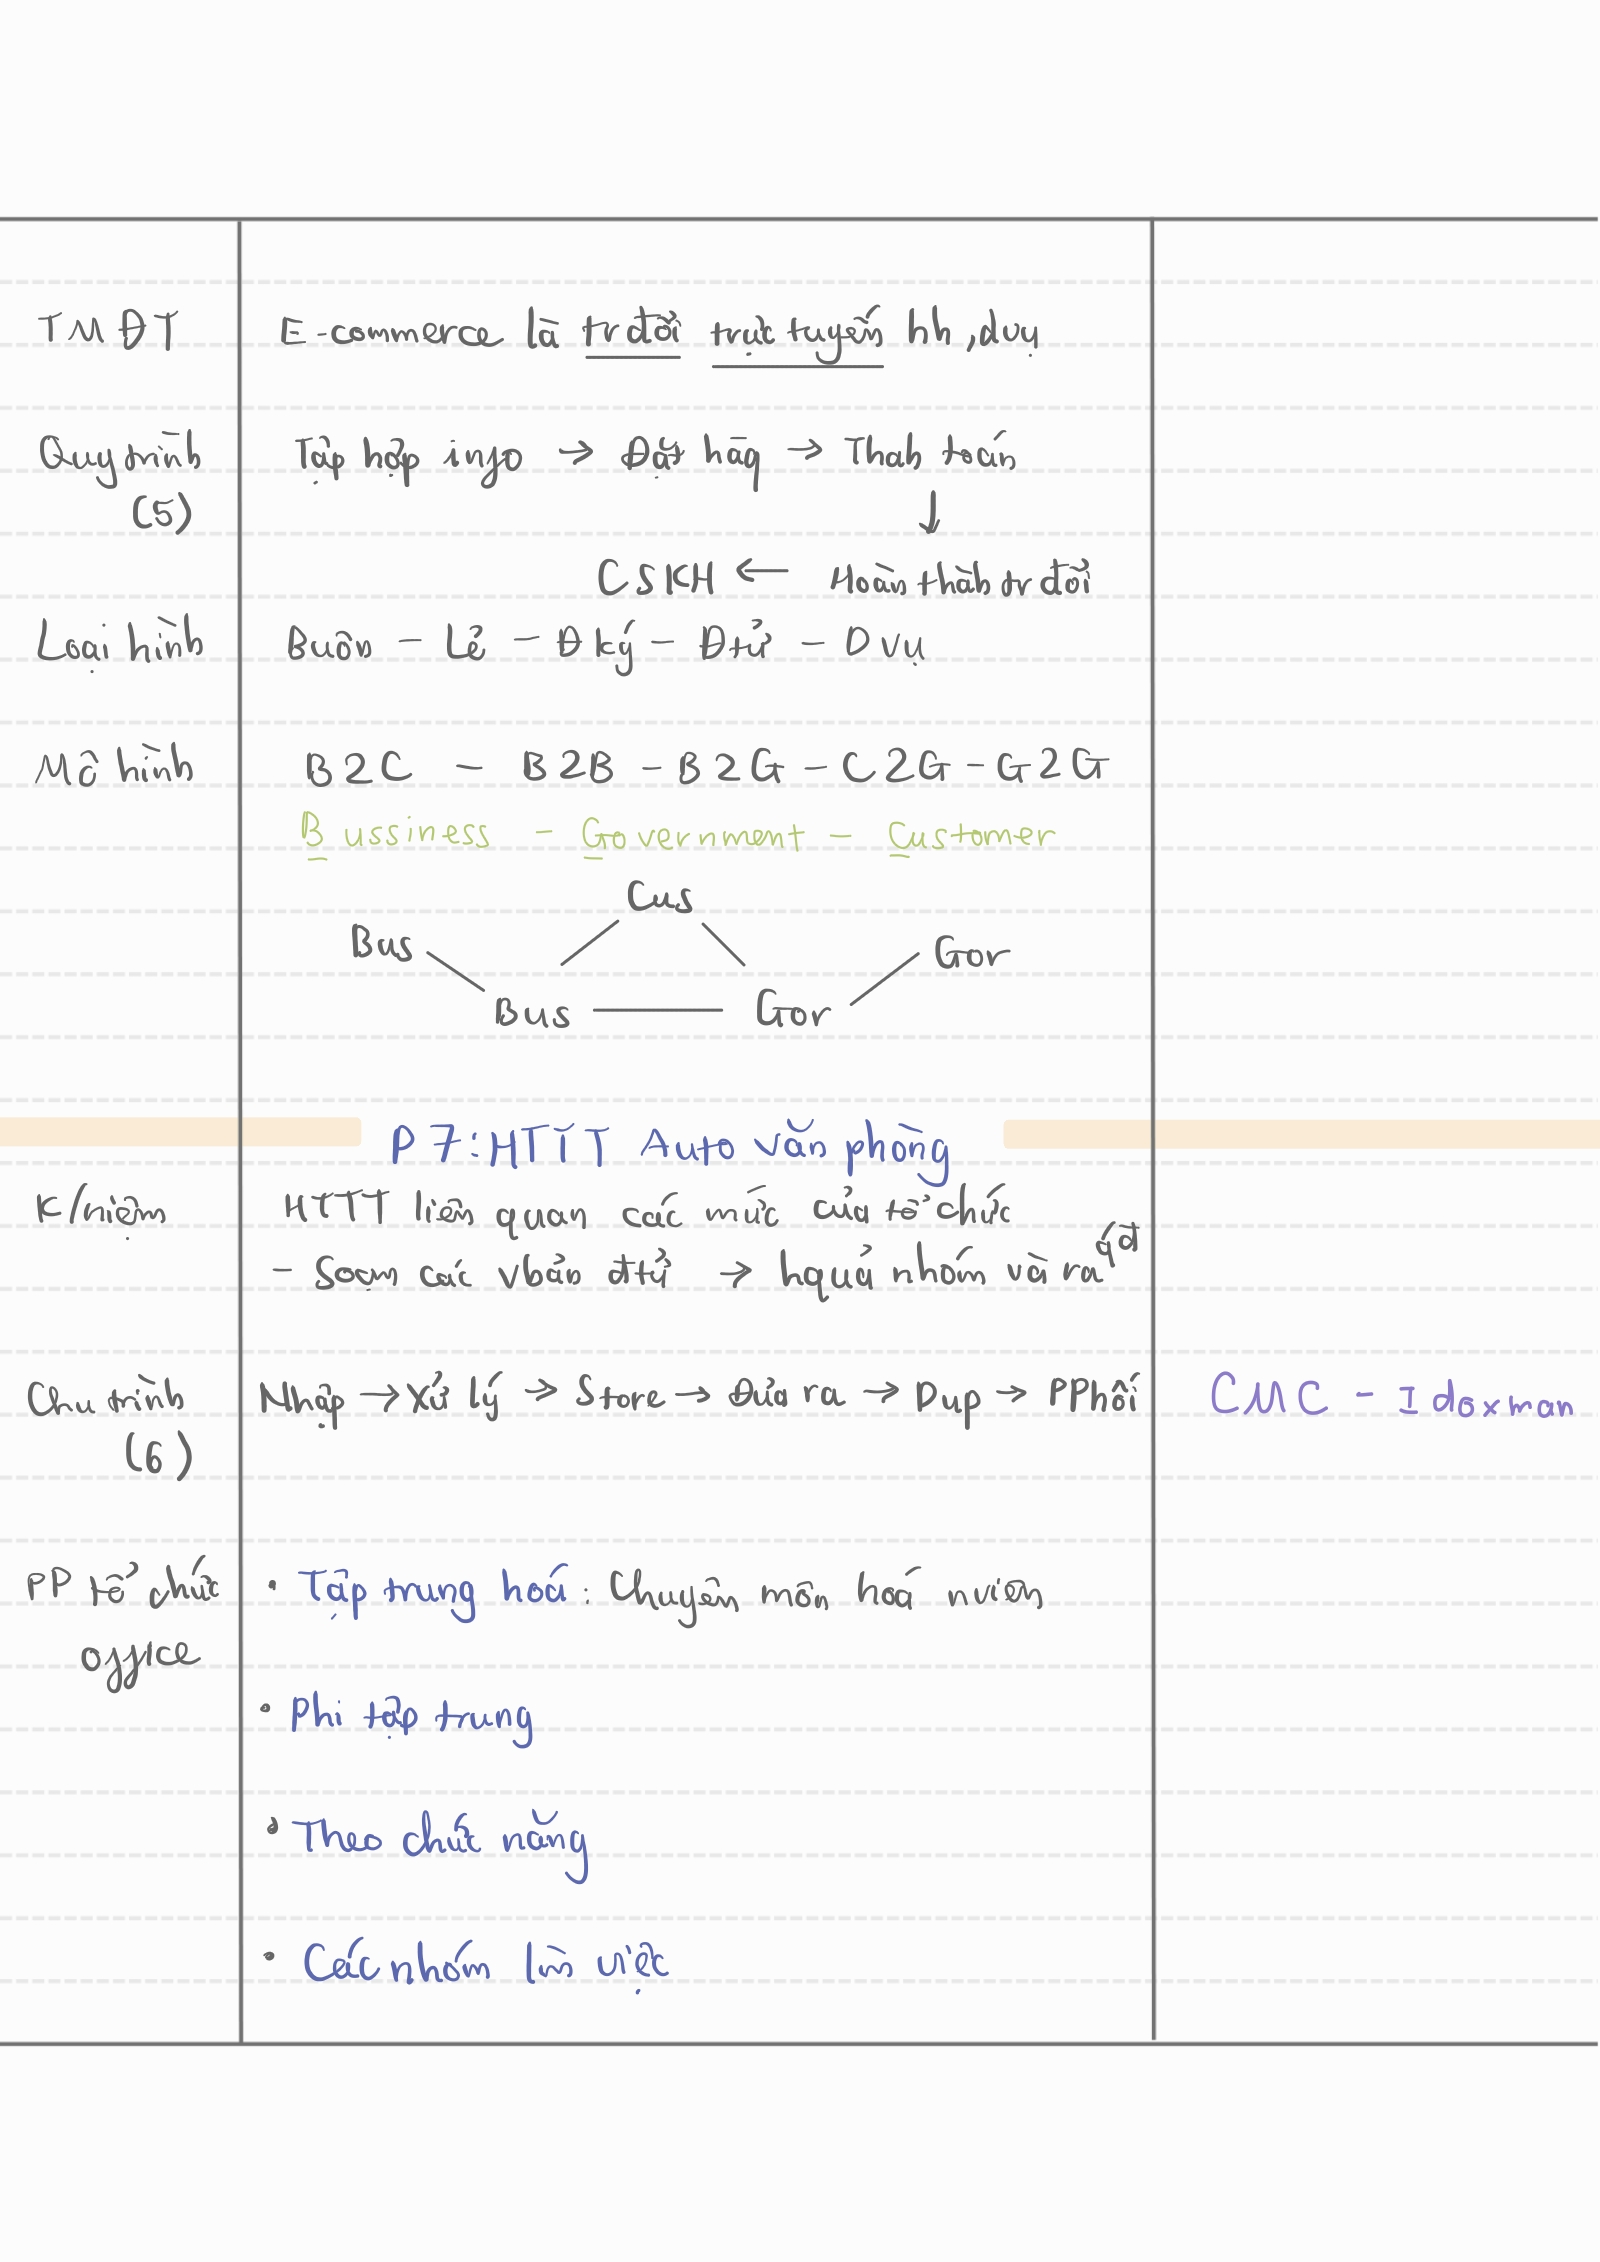 TMĐT E-commerce là tr đổi trực tuyến hh, dvụ
Quy trình Tập hợp info → Đặt hàg → Thah toán
(5) ↓
CSKH ← Hoàn thàh tr đổi
Loại hình Buôn - Lẻ - Đ ký - Đ tử - D vụ
Mô hình B2C - B2B - B2G - C2G - G2G
Bussiness - Government - Customer
Cus
Bus Gor
Bus Gor
P7: HTTT Auto văn phòng
K/niệm HTTT liên quan các mức của tổ chức
- Soạn các vbản đtử → hquả nhóm và ra qđ
Chu trình Nhập → Xử lý → Store → Đưa ra → Dup → PPhối CMC - Idoxman
(6)
PP tổ chức • Tập trung hoá: Chuyên môn hoá nviên
office
• Phi tập trung
• Theo chức năng
• Các nhóm làm việc